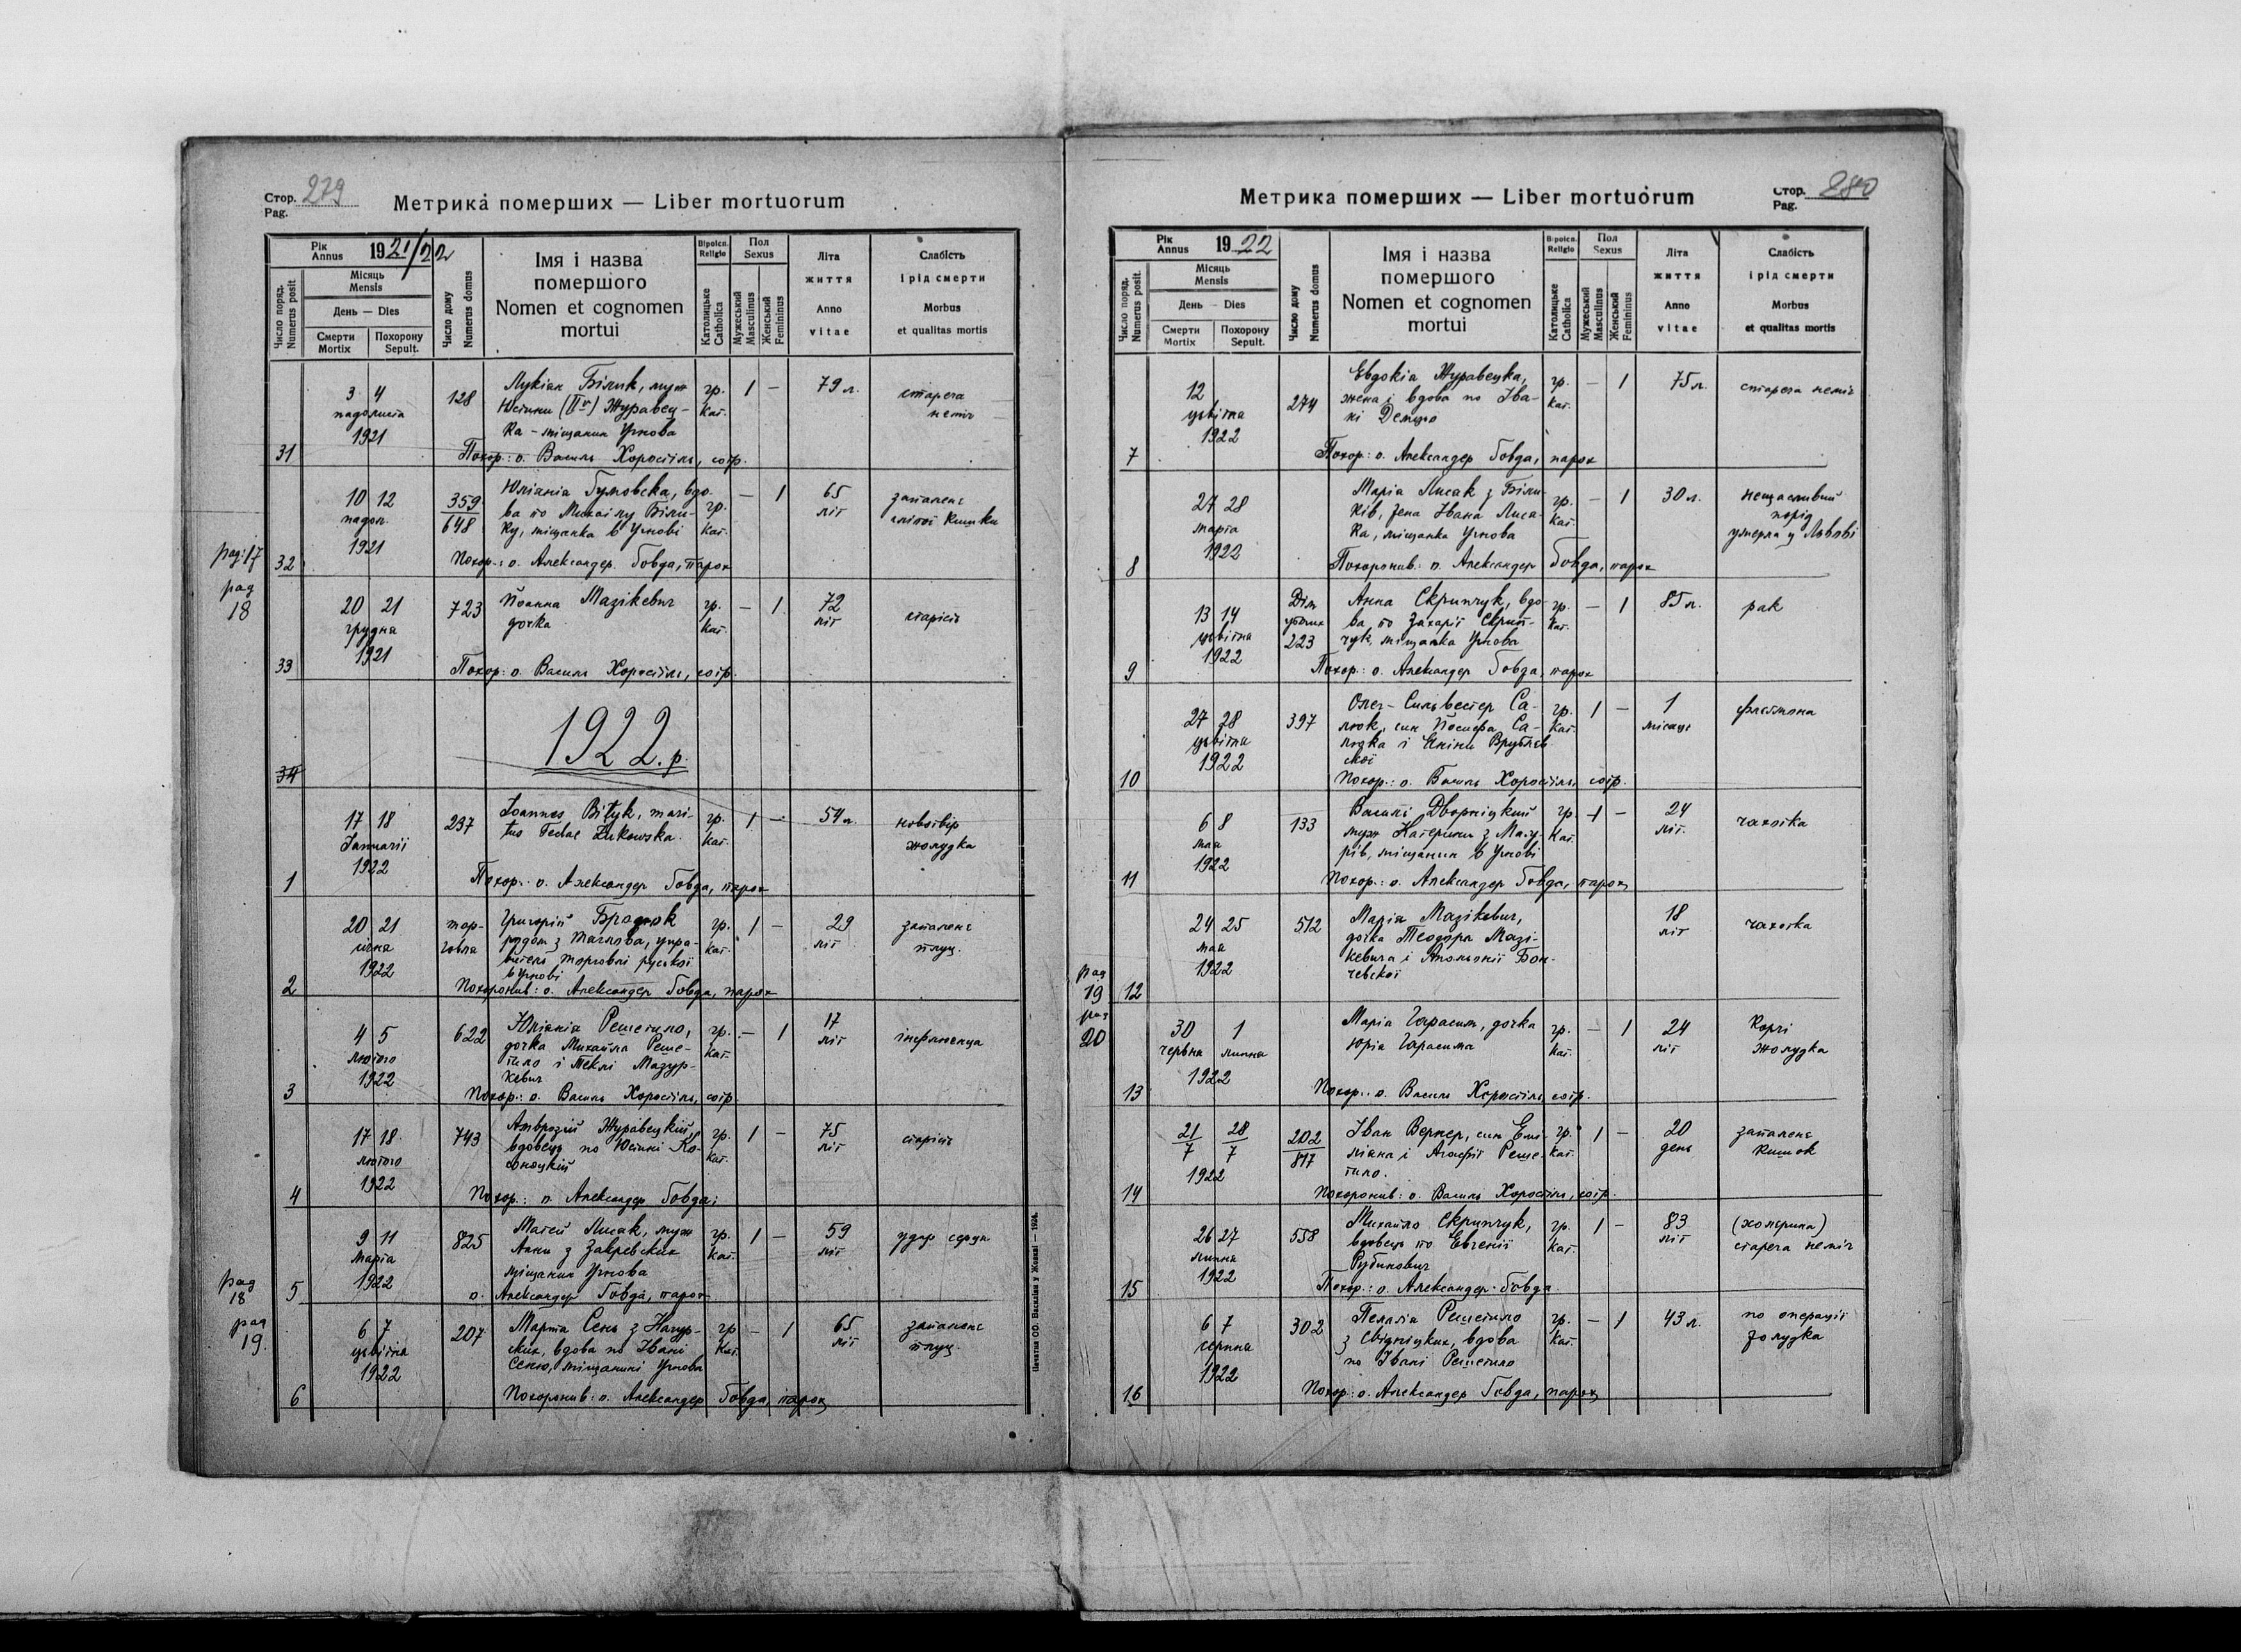 Стор. 279
Pag.
Метрика померших — Liber mortuorum
Рік
Annus
1921/22
Місяць
Mensis
День — Dies
Смерти
Mortix
Похорону
Sepult.
Число поряд.
Numerus posit
Число дому
Numerus domus
Імя і назва
помершого
Nomen et cognomen
mortui
Віроісп.
Religio
Католицьке
Catholica
Пол
Sexus
Мужеський
Masculinus
Женський
Femininus
Літа
життя
Anno
vitae
Слабість
і рід смерти
Morbus
et qualitas mortis
31
3 4
падолиста
1921
128
Лукіян Білик, муж
Юстини (IIv) Журавец-
ка - міщанин Угнова
гр.
кат.
1 —
79 л.
стареча
неміч
Похор: о. Василь Хоростіль, сотр.
рад: 17
32
10 12
падол.
1921
359
648
Юліанія Гумовска, вдо-
ва по Михаілу Біли-
ку, міщанка в Угнові
гр.
кат.
— 1
65
літ
запалене
сліпої кишки
Похор.: о. Александер Говда, парох
рад
18
33
20 21
грудня
1921
723
Йоанна Мазікевич
дочка
гр.
кат.
— 1
72
літ
старість
Похор: о. Василь Хоростіль, сотр.
34
1922. р.
1
17 18
Januarii
1922
237
Joannes Biłyk, mari-
tus Teclae Żukowska.
гр.
кат.
1 —
54 л.
новотвір
жолудка
Похор: о. Александер Говда, парох
2
20 21
січня
1922
тор-
говля
Григорій
родом з
торговлі руської
в Угнові
гр.
кат.
1 —
29
літ
запалене
плуц.
Похоронив: о. Александер Говда, парох
3
4 5
лютого
1922
622
Юліянія Решетило,
дочка Михайла Реше-
тило і Теклі Мазур-
кевич
гр.
кат.
— 1
17
літ
інфлюенца
Похор: о. Василь Хоростіль, сотр.
4
17 18
лютого
1922
743
Амврозій Журавецкій,
вдовець по Юстині
гр.
кат.
1 —
75
літ
старість
Похор: о. Александер Говда;
рад
18
5
9 11
марта
1922
825
Матей Лисак, муж
Анни з Завревских
міщанин Угнова
гр.
кат.
1 —
59
літ
удар серця
о. Александер Говда, парох
рад
19.
6
6 7
цвітня
1922
207
Марта Сень з
вдова по Івані
Сеню, міщанині Угнова
гр
кат.
— 1
65
літ
запалене
плуц.
Похоронив: о. Александер Говда, парох
Печатня ОО. Василіян у Жовкві — 1924.
Метрика померших — Liber mortuorum
Стор. 280
Pag.
Рік
Annus
1922
Місяць
Mensis
День — Dies
Смерти
Mortix
Похорону
Sepult.
Число поряд.
Numerus posit.
Число дому
Numerus domus
Імя і назва
помершого
Nomen et cognomen
mortui
Віроісп.
Religio
Католицьке
Catholica
Пол
Sexus
Мужеський
Masculinus
Женський
Femininus
Літа
життя
Anno
vitae
Слабість
і рід смерти
Morbus
et qualitas mortis
7
12
цвітня
1922
274
Евдокія Журавецка,
жена і вдова по Іва-
ні Демцю
гр.
кат.
— 1
75 л.
стареча неміч
Похор: о. Александер Говда, парох
8
27 28
марта
1922
Марія Лисак з Біли-
ків, жена Івана Лиса-
ка, міщанка Угнова
гр.
кат.
— 1
30 л.
нещасливий
порід
умерла у Львові
Похоронив: о. Александер Говда, парох
9
13 14
цвітня
1922
Дім
убогих
223
Анна Скрипчук, вдо-
ва по Захарії Скрип-
чук, міщанка Угнова
гр.
кат.
— 1
85 л.
рак
Похор: о. Александер Говда, парох
10
27 28
цвітня
1922
397
Олег-Сильвестер Са-
люк, син Йосифа Са-
люка і Яніни Врублев-
скої
гр.
кат.
1 —
1
місяць
флегмона
Похор.: о. Василь Хоростіль, сотр.
11
6 8
мая
1922
133
Василі Дворніцкий
муж Катерини з Мазу-
рів, міщанин в Угнові
гр
кат.
1 —
24
літ.
чахотка
Похор.: о. Александер Говда, парох
рад
19
12
24 25
мая
1922
512
Марія Мазікевич,
дочка Теодора Мазі-
кевича і Апольонії Бон-
чевскої
18
літ
чахотка
рад
20
13
30 1
червня липня
1922
Марія Гарасим, дочка
Юрія Гарасима
гр.
кат.
— 1
24
літ
Корчі
жолудка
Похор.: о. Василь Хоростіль, сотр.
14
21 28
7 7
1922
202
817
Іван Вернер, син Емі-
ліяна і Агафії Реше-
тило.
гр.
кат.
1 —
20
день
запалене
кишок
Похоронив: о. Василь Хоростіль, сотр.
15
26 27
липня
1922
558
Михайло Скрипчук,
вдовець по Евгенії
Рубинович
гр.
кат.
1 —
83
літ
(холерина)
стареча неміч
Похор: о. Александер Говда
16
6 7
серпня
1922
302
Пелагія Решетило
з Свідніцких, вдова
по Івані Решетило
гр.
кат.
— 1
43 л.
по операції
жолудка
Похор: о. Александер Говда, парох